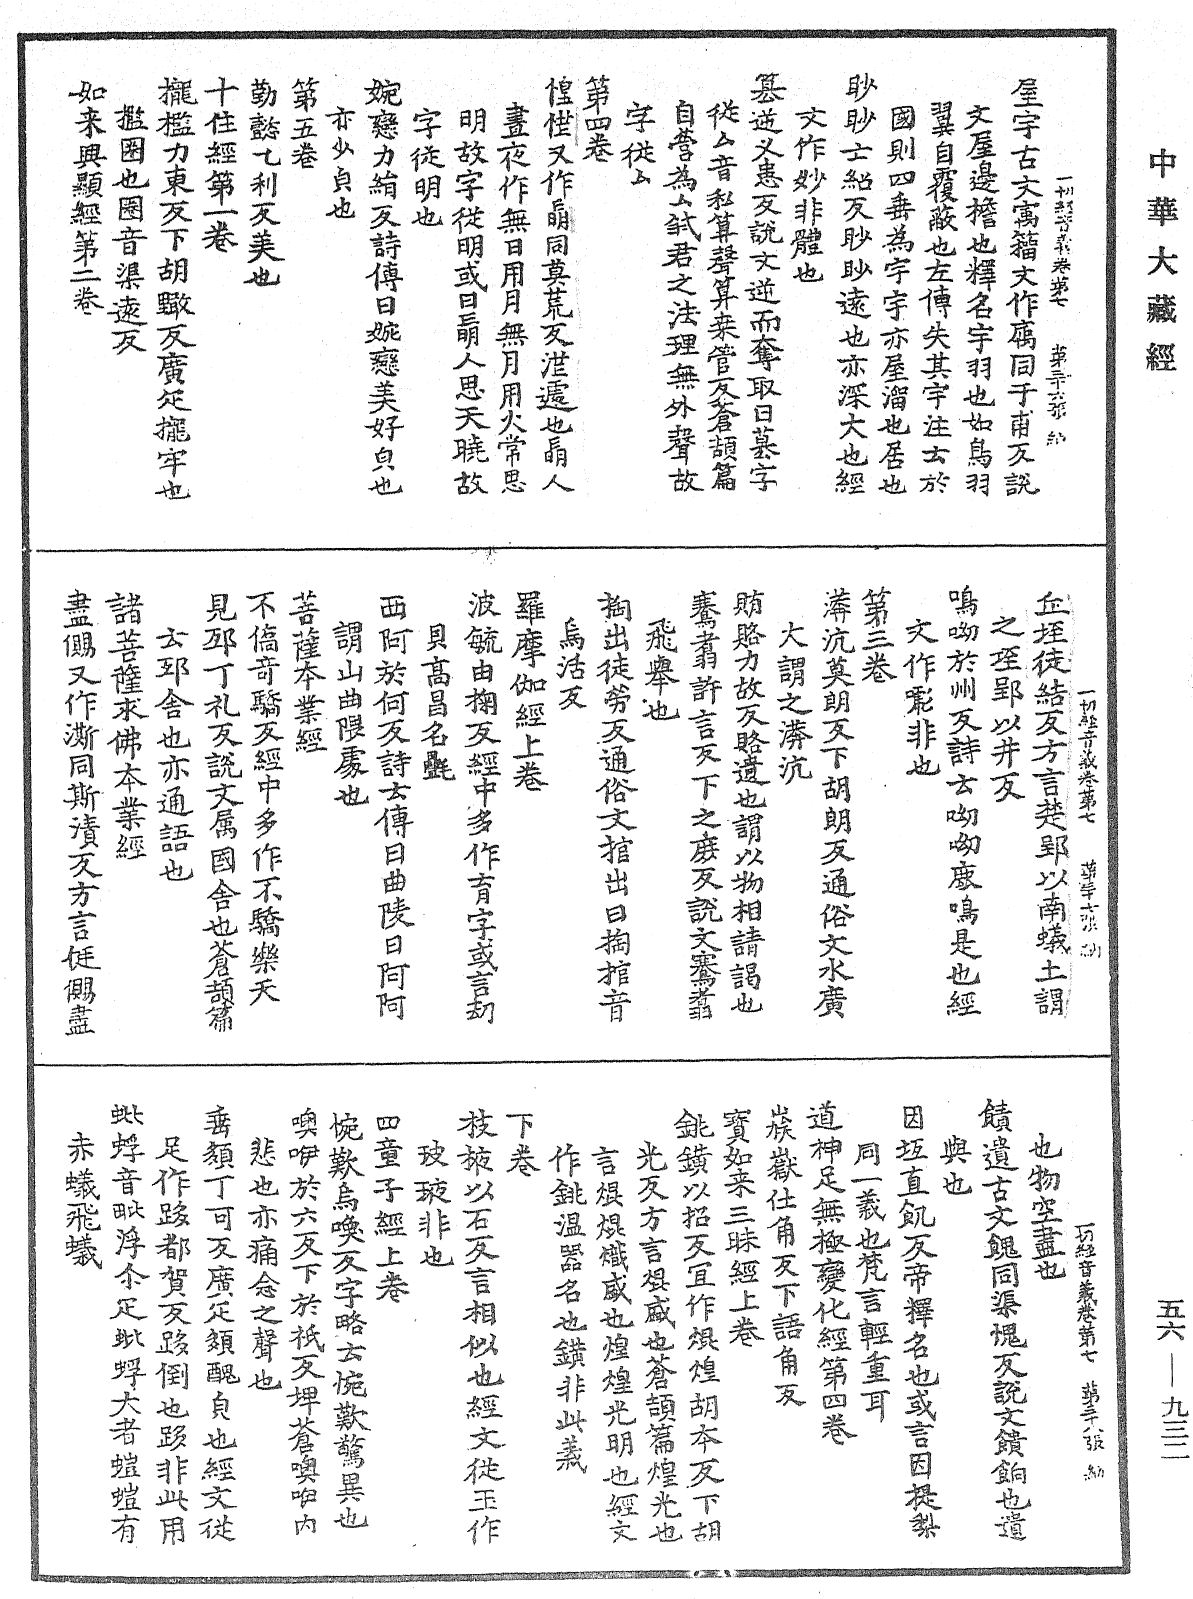 中華大藏經
一切經音義卷第七　第三十六張　納
屋宇古文㝢籀文作庽同于甫反説
文屋邊檐也釋名宇羽也如鳥羽
翼自覆蔽也左傳失其宇注云於
國則四垂為宇宇亦屋溜也居也
眇眇士紹反眇眇遠也亦深大也經
文作妙非體也
篡逆义患反説文逆而奪取曰篡字
從厶音私算聲算桒管反蒼頡篇
自營為厶弒君之法理無外聲故
字從厶
第四卷
惶恾又作朚同莫荒反恾遽也朚人
晝夜作無日用月無月用火常思
明故字從明或曰朚人思天曉故
字從明也
婉戀力絹反詩傳曰婉戀美好皃也
亦少皃也
第五卷
勤懿乙利反美也
十住經第一卷
攏檻力東反下胡黤反廣疋攏牢也
檻圈也圈音渠遠反
如来興顯經第二卷
一切經音義卷第七　第三十七張　納
丘垤徒結反方言楚郢以南蟻土謂
之垤郢以井反
鳴呦於州反詩云呦呦鹿鳴是也經
文作㘈非也
第三卷
漭沆莫朗反下胡朗反通俗文水廣
大謂之漭沆
賄賂力故反賂遺也謂以物相請謁也
騫翥許言反下之庶反説文騫翥
飛舉也
掏出徒勞反通俗文捾出曰掏捾音
烏活反
羅摩伽經上卷
波毓由掬反經中多作育字或言劫
貝高昌名㲲
西阿於何反詩云傳曰曲陵曰阿阿
謂山曲隈處也
菩薩本業經
不憍奇驕反經中多作不驕樂天
見邸丁礼反説文属國舍也蒼頡篇
云邸舍也亦通語也
諸菩薩求佛本業經
盡儩又作澌同斯漬反方言鋌儩盡
一切經音義卷第七　第三十八張　納
也物空盡也
饋遺古文餽同渠愧反説文饋餉也遺
與也
因坻直飢反帝釋名也或言因提梨
同一義也梵言輕重耳
道神足無極變化經第四卷
嶽仕角反下語角反
寶如来三昧經上卷
銚鐄以招反冝作焜煌胡本反下胡
光反方言焜盛也蒼頡篇煌光也
言焜焜熾盛也煌煌光明也經文
作銚温器名也鐄非此義
下卷
枝掖以石反言相似也經文從玉作
玻琙非也
四童子經上卷
惋歎烏喚反字略云惋歎驚異也
噢咿於六反下於祇反埤蒼噢咿内
悲也亦痛念之聲也
垂䫂丁可反廣疋䫂醜皃也經文從
足作跢都賀反跢倒也跢非此用
蚍蜉音毗浮尒疋蚍蜉大者螘螘有
赤蟻飛蟻
五六—九三二